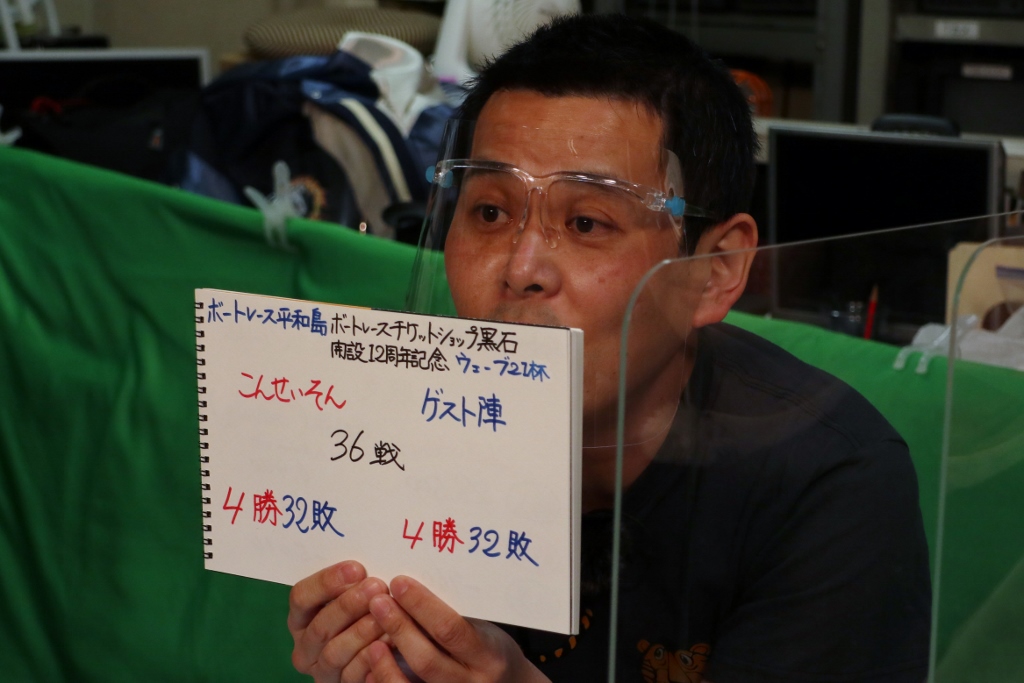 ボートレース平和島 ボートレースチケットショップ黒石
開設12周年記念 ウェーブ21杯
こんせいそん ゲスト陣
36戦
4勝32敗 4勝32敗